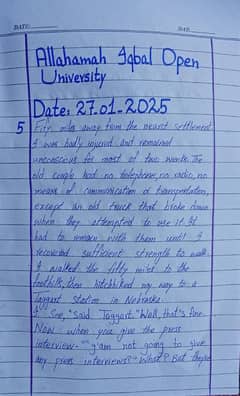 DATE:
DAY:
Allahamah Iqbal Open
University
Date: 27.01-2025
5 Fify mils away from the nearst settlement
I was badly injured and remained
unconscious for most of two weeks. The
old couple had no telephone, no radio, no
means of communication or transportation,
except an old truck that broke down
when they attempted to use it. I
had to remain with them until I
recovered sufficient strength to walk.
I walked the fifty miles to the
foothills, then hitchhiked my way to a
Taggart station in Nebraska.
"I See," Said Taggart. "Well, that's fine.
Now when you give the press
interview-" "I'am not going to give
any press interviews?" "What? But they've